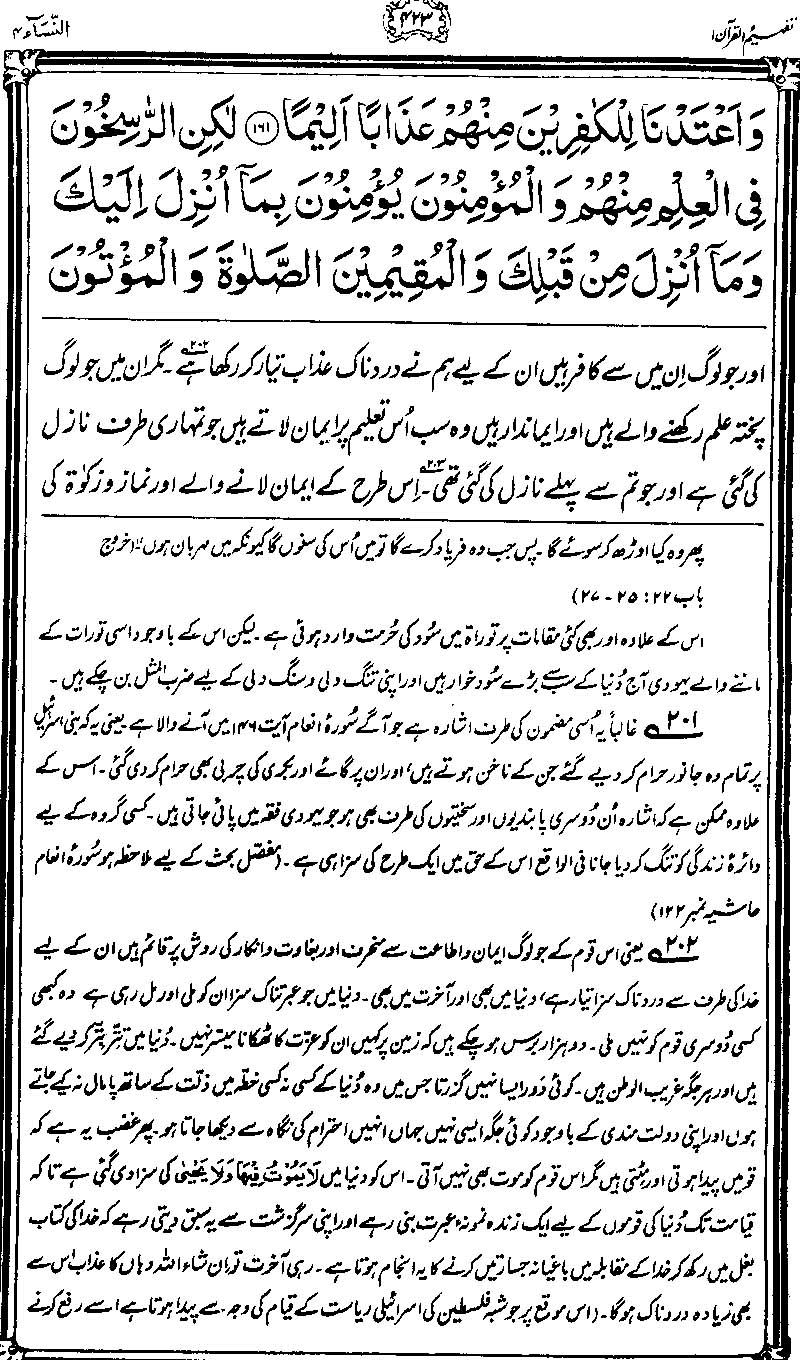 تفہیم القرآن ۱
۴۲۳
النّسآء ۴
وَاَعْتَدْنَا لِلْكٰفِرِيْنَ مِنْهُمْ عَذَابًا اَلِيْمًا ۝۱۶۱ لٰكِنِ الرّٰسِخُوْنَ
فِي الْعِلْمِ مِنْهُمْ وَالْمُؤْمِنُوْنَ يُؤْمِنُوْنَ بِمَآ اُنْزِلَ اِلَيْكَ
وَمَآ اُنْزِلَ مِنْ قَبْلِكَ وَالْمُقِيْمِيْنَ الصَّلٰوةَ وَالْمُؤْتُوْنَ
اور جو لوگ اِن میں سے کافر ہیں ان کے لیے ہم نے دردناک عذاب تیار کر رکھا ہے۲۰۲۔ مگر ان میں جو لوگ
پختہ علم رکھنے والے ہیں اور ایماندار ہیں وہ سب اُس تعلیم پر ایمان لاتے ہیں جو تمہاری طرف نازل
کی گئی ہے اور جو تم سے پہلے نازل کی گئی تھی۲۰۳۔ اِس طرح کے ایمان لانے والے اور نماز و زکوٰۃ کی
پھر وہ کیا اوڑھ کر سوئے گا۔ پس جب وہ فریاد کرے گا تو میں اُس کی سنوں گا کیونکہ میں مہربان ہوں“ (خروج
باب ۲۲: ۲۵-۲۷)
اس کے علاوہ اور بھی کئی مقامات پر توراۃ میں سُود کی حُرمت وارد ہوئی ہے۔ لیکن اس کے باوجود اسی تورات کے
ماننے والے یہودی آج دُنیا کے سب سے بڑے سُود خوار ہیں اور اپنی تنگ دلی و سنگ دلی کے لیے ضرب المثل بن چکے ہیں۔
۲۰۱ غالباً یہ اُسی مضمون کی طرف اشارہ ہے جو آگے سُورۂ انعام آیت ۱۴۶ میں آنے والا ہے۔ یعنی یہ کہ بنی اسرائیل
پر تمام وہ جانور حرام کر دیے گئے جن کے ناخن ہوتے ہیں، اور ان پر گائے اور بکری کی چربی بھی حرام کر دی گئی۔ اس کے
علاوہ ممکن ہے کہ اشارہ اُن دُوسری پابندیوں اور سختیوں کی طرف بھی ہو جو یہودی فقہ میں پائی جاتی ہیں۔ کسی گروہ کے لیے
دائرۂ زندگی کو تنگ کر دیا جانا فی الواقع اس کے حق میں ایک طرح کی سزا ہی ہے۔ (مفصّل بحث کے لیے ملاحظہ ہو سُورۂ انعام
حاشیہ نمبر ۱۲۲)
۲۰۲ یعنی اس قوم کے جو لوگ ایمان و اطاعت سے منحرف اور بغاوت و انکار کی روش پر قائم ہیں ان کے لیے
خدا کی طرف سے دردناک سزا تیار ہے، دنیا میں بھی اور آخرت میں بھی۔ دنیا میں جو عبرتناک سزا ان کو ملی اور مل رہی ہے وہ کبھی
کسی دُوسری قوم کو نہیں ملی۔ دو ہزار برس ہو چکے ہیں کہ زمین پر کہیں ان کو عزت کا ٹھکانا میسّر نہیں۔ دُنیا میں تتّر بتّر کر دیے گئے
ہیں اور ہر جگہ غریب الوطن ہیں۔ کوئی دَور ایسا نہیں گزرتا جس میں وہ دُنیا کے کسی نہ کسی خطّہ میں ذلّت کے ساتھ پامال نہ کیے جاتے
ہوں اور اپنی دولت مندی کے باوجود کوئی جگہ ایسی نہیں جہاں انہیں احترام کی نگاہ سے دیکھا جاتا ہو۔ پھر غضب یہ ہے کہ
قومیں پیدا ہوتی اور مٹتی ہیں مگر اس قوم کو موت بھی نہیں آتی۔ اس کو دنیا میں لَا يَمُوْتُ فِيْهَا وَلَا يَحْيٰى کی سزا دی گئی ہے تاکہ
قیامت تک دُنیا کی قوموں کے لیے ایک زندہ نمونۂ عبرت بنی رہے اور اپنی سرگزشت سے یہ سبق دیتی رہے کہ خدا کی کتاب
بغل میں رکھ کر خدا کے مقابلہ میں باغیانہ جسارتیں کرنے کا یہ انجام ہوتا ہے۔ رہی آخرت تو ان شاء اللہ وہاں کا عذاب اس سے
بھی زیادہ دردناک ہوگا۔ (اس موقع پر جو شبہ فلسطین کی اسرائیلی ریاست کے قیام کی وجہ سے پیدا ہوتا ہے اسے رفع کرنے